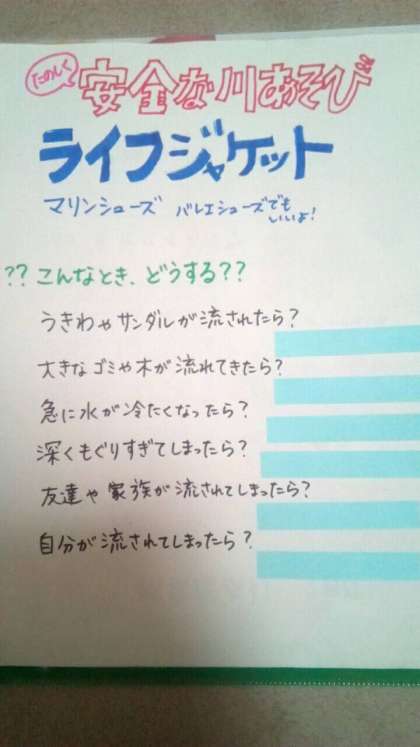 たのしく
安全な川あそび
ライフジャケット
マリンシューズ バレエシューズでも
いいよ!
?? こんなとき、どうする??
うきわやサンダルが流されたら?
大きなゴミや木が流れてきたら?
急に水が冷たくなったら?
深くもぐりすぎてしまったら?
友達や家族が流されてしまったら?
自分が流されてしまったら?